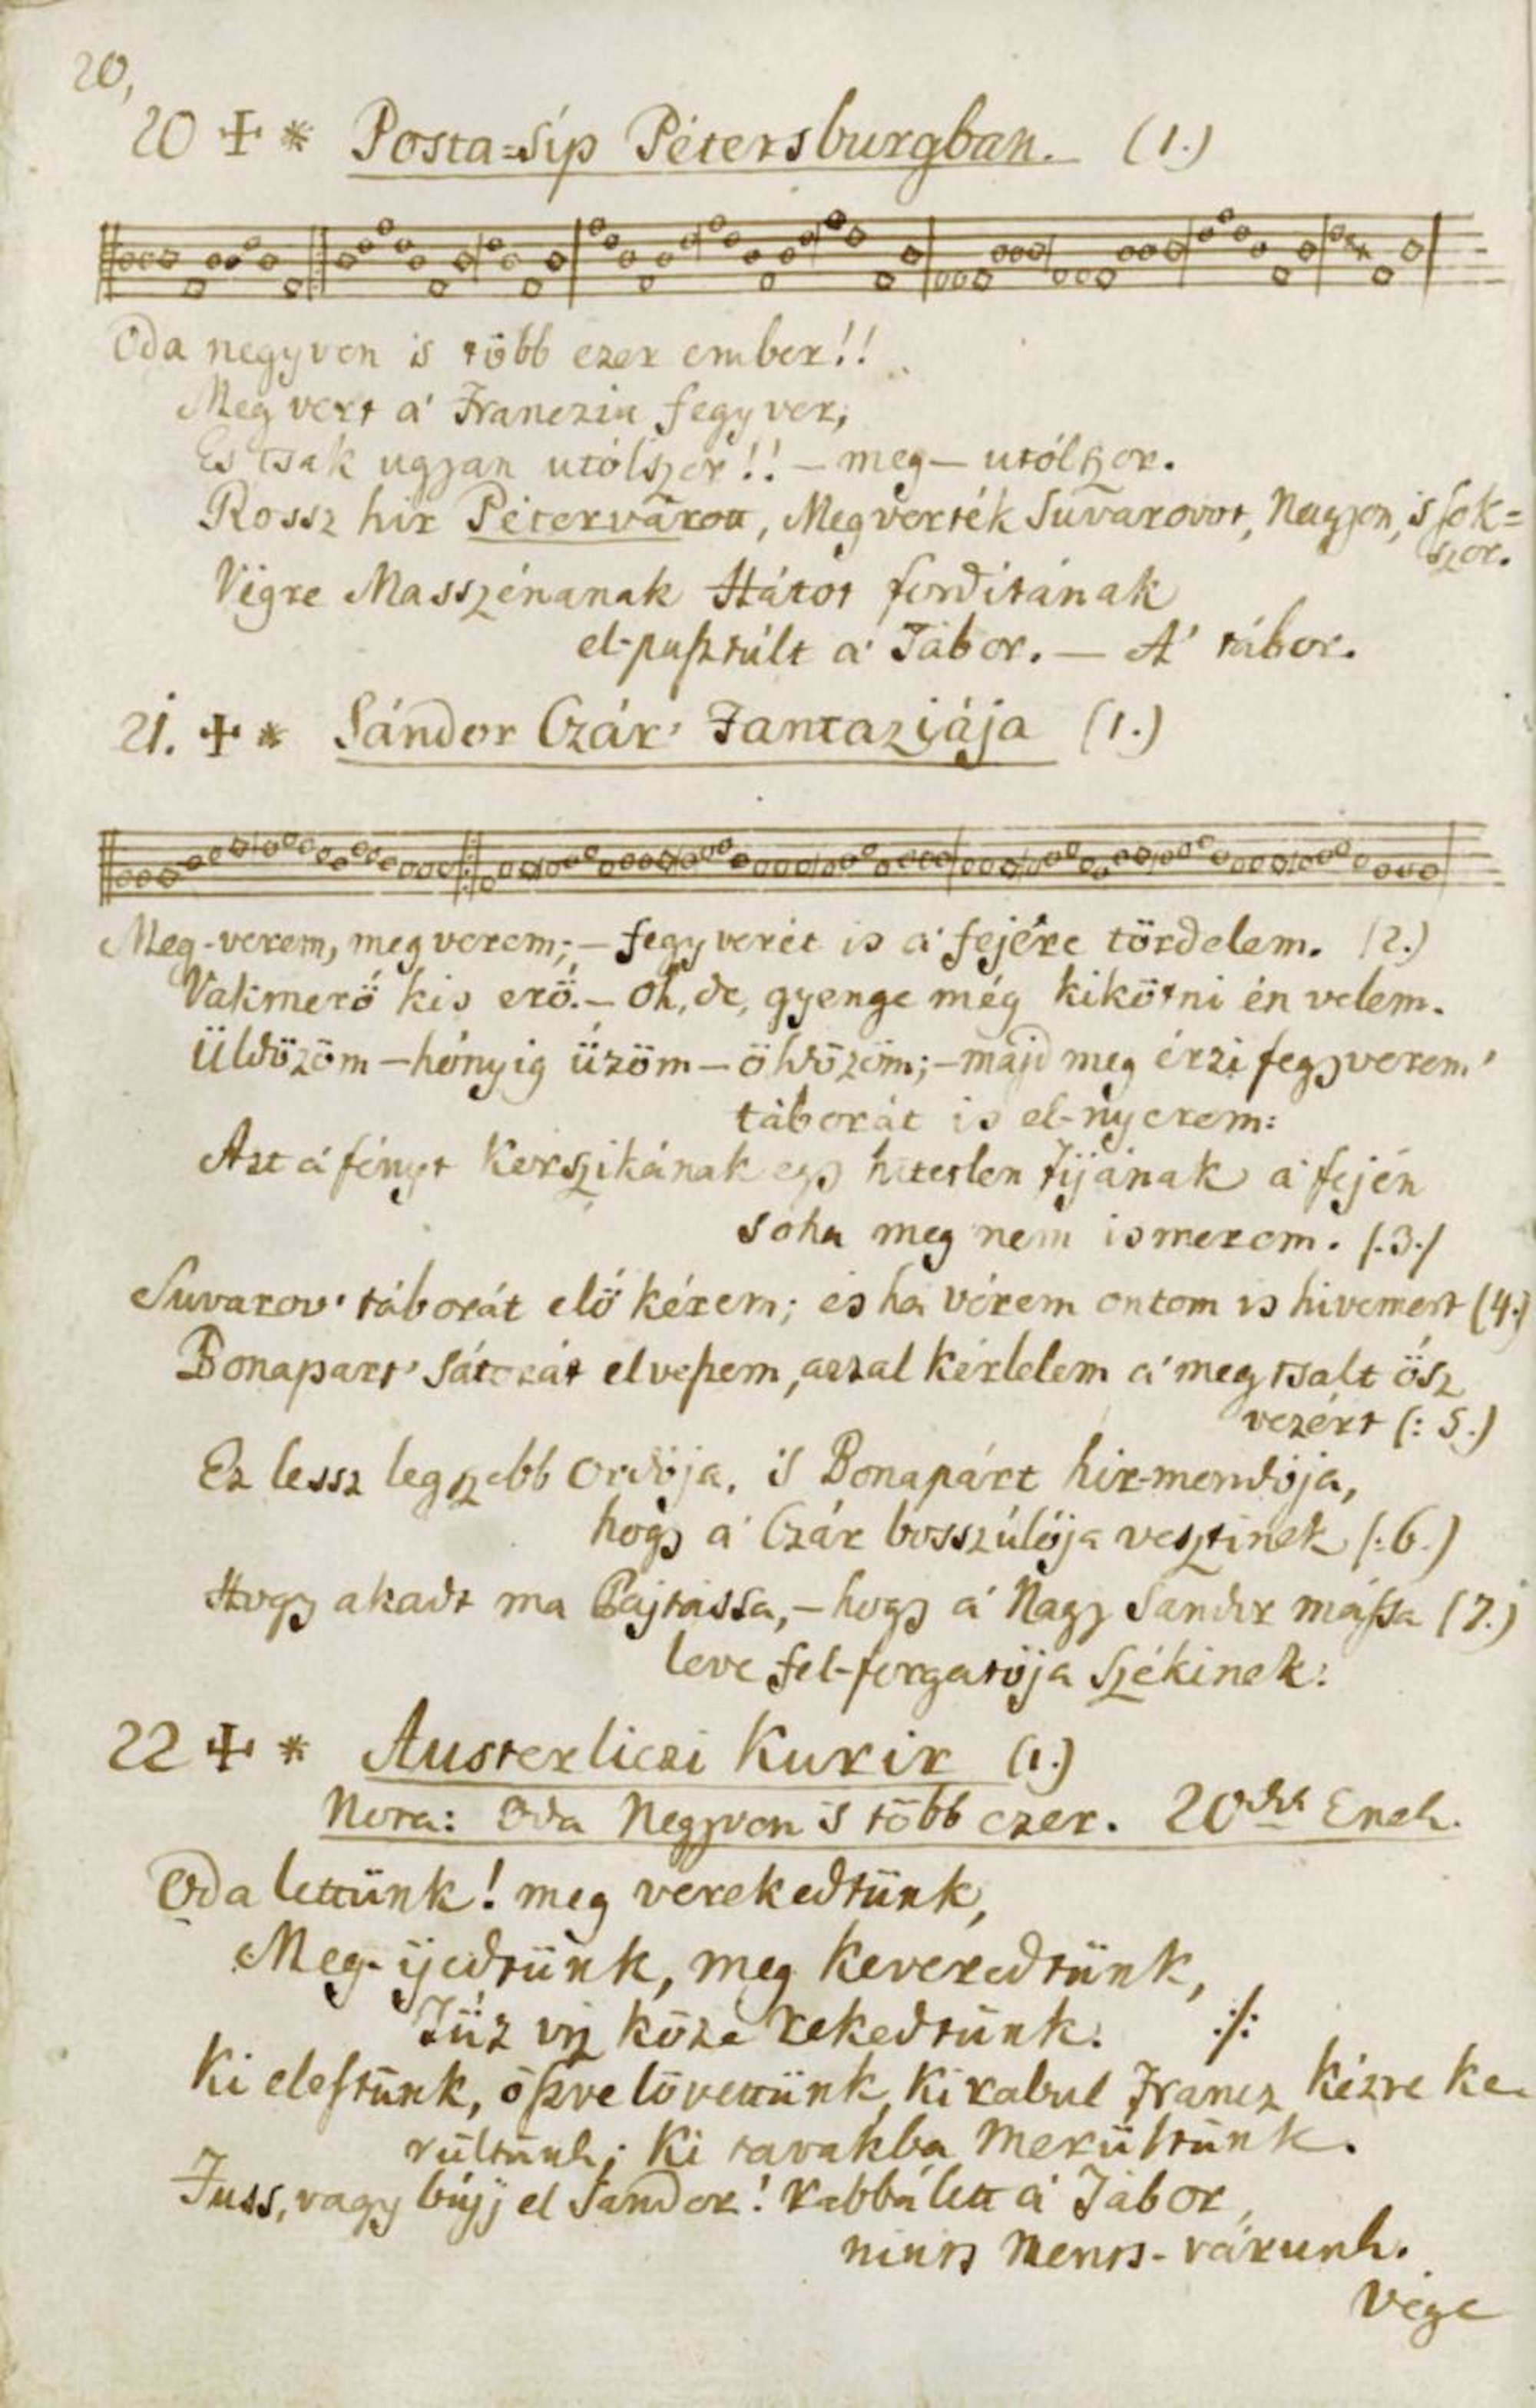 20,
20 ✠ * Posta=síp Pétersburgban. (1.)
Oda negyven is több ezer ember!!
Meg vert a' Franczia fegyver;
Es tsak ugyan utólszor!! – meg – utólszor.
Rossz hir Pétervárott, Megverték Suvarovot, Nagyon, is sok=
szor.
Vėgre Masszénanak Hátot fordítának
el-pusztúlt a' Tábor. — A' tábor.
21. ✠ * Sándor Czár' Fantaziája (1.)
Meg-verem, meg verem; – fegyverét is a' fejére tördelem. (2.)
Vakmerő kis erő. – Oh, de, gyenge még kikötni én velem.
Üldözöm – hönyig űzöm – öldözöm; – majd meg érzi fegyverem'
táborát is el-nyerem:
Azt a' fényt Korszikának egy hitetlen fijának a' fején
soha meg nem ismerem. (.3.)
Suvarov' táborát elő kérem; és ha vérem ontom is hivemért (4.)
Bonapart' Sátorát elveszem, azzal kérlelem a' meg tsalt ősz
vezért (: 5.)
Ez lessz legszebb Ordója, 's Bonapárt hir-mondója,
hogy a' Czár bosszúlója vesztinek (:6.)
Hogy akadt ma Pajtássa, – hogy a' Nagy Sándor mássa (7.)
leve fel-forgatója Székinek:
22 ✠ * Austerliczi Kurir (1.)
Nota: Oda Negyven 's több ezer. 20dik Enek.
Oda lettünk! meg verekedtünk,
Meg-ijedtünk, meg keveredtünk,
Tűz víz köze rekedtünk. :/:
Ki elestünk, öszve lövettünk, Ki rabul Francz kézre ke-
rültünk; Ki tavakba merültünk.
Fuss, vagy búj el Sándor! rabbá lett a' Tábor,
nints ments-várunk.
Vége